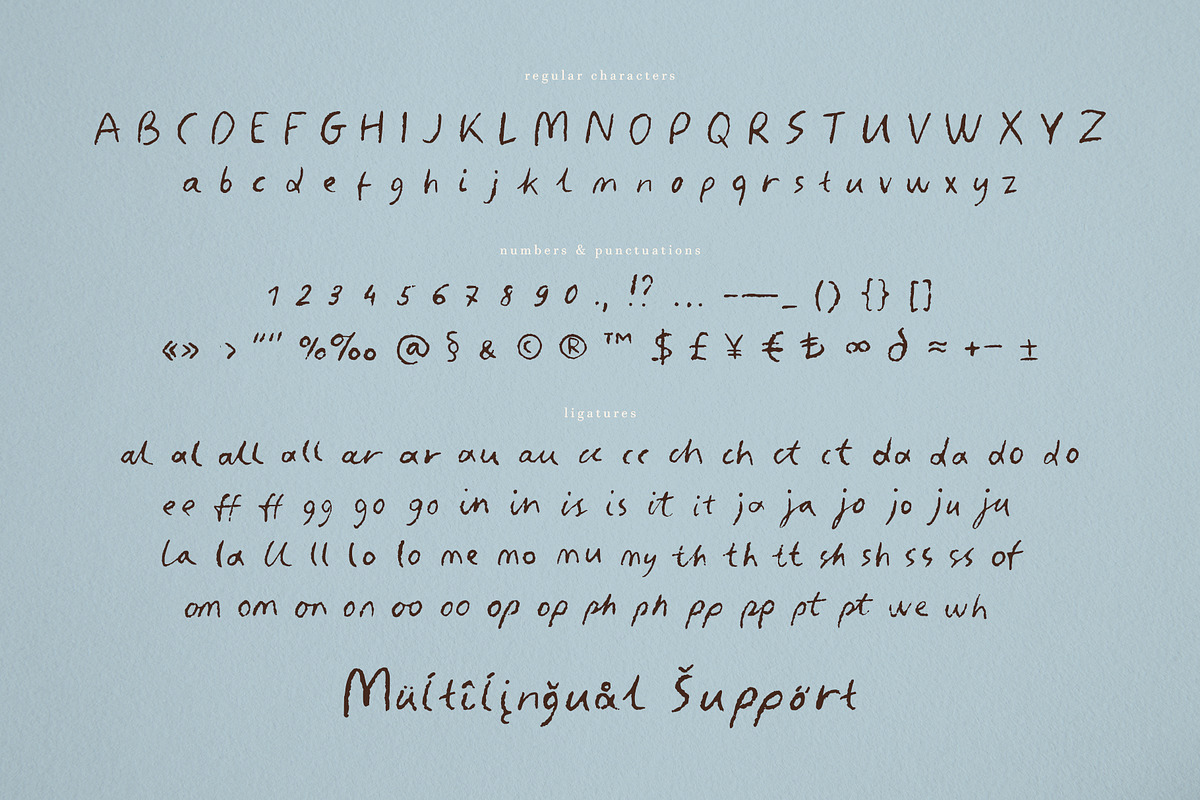 regular characters
A B C D E F G H I J K L M N O P Q R S T U V W X Y Z
a b c d e f g h i j k l m n o p q r s t u v w x y z
numbers & punctuations
1 2 3 4 5 6 7 8 9 0 ., !? ... -–—_ () {} []
«» › "" %‰ @ § & © ® ™ $ £ ¥ € ₺ ∞ ∂ ≈ +− ±
ligatures
al al all all ar ar au au cc cc ch ch ct ct da da do do
ee ff ff gg go go in in is is it it ja ja jo jo ju ju
la la ll ll lo lo me mo mu my th th tt sh sh ss ss of
om om on on oo oo op op ph ph pp pp pt pt we wh
Müĺtîlįnğuål Šuppört